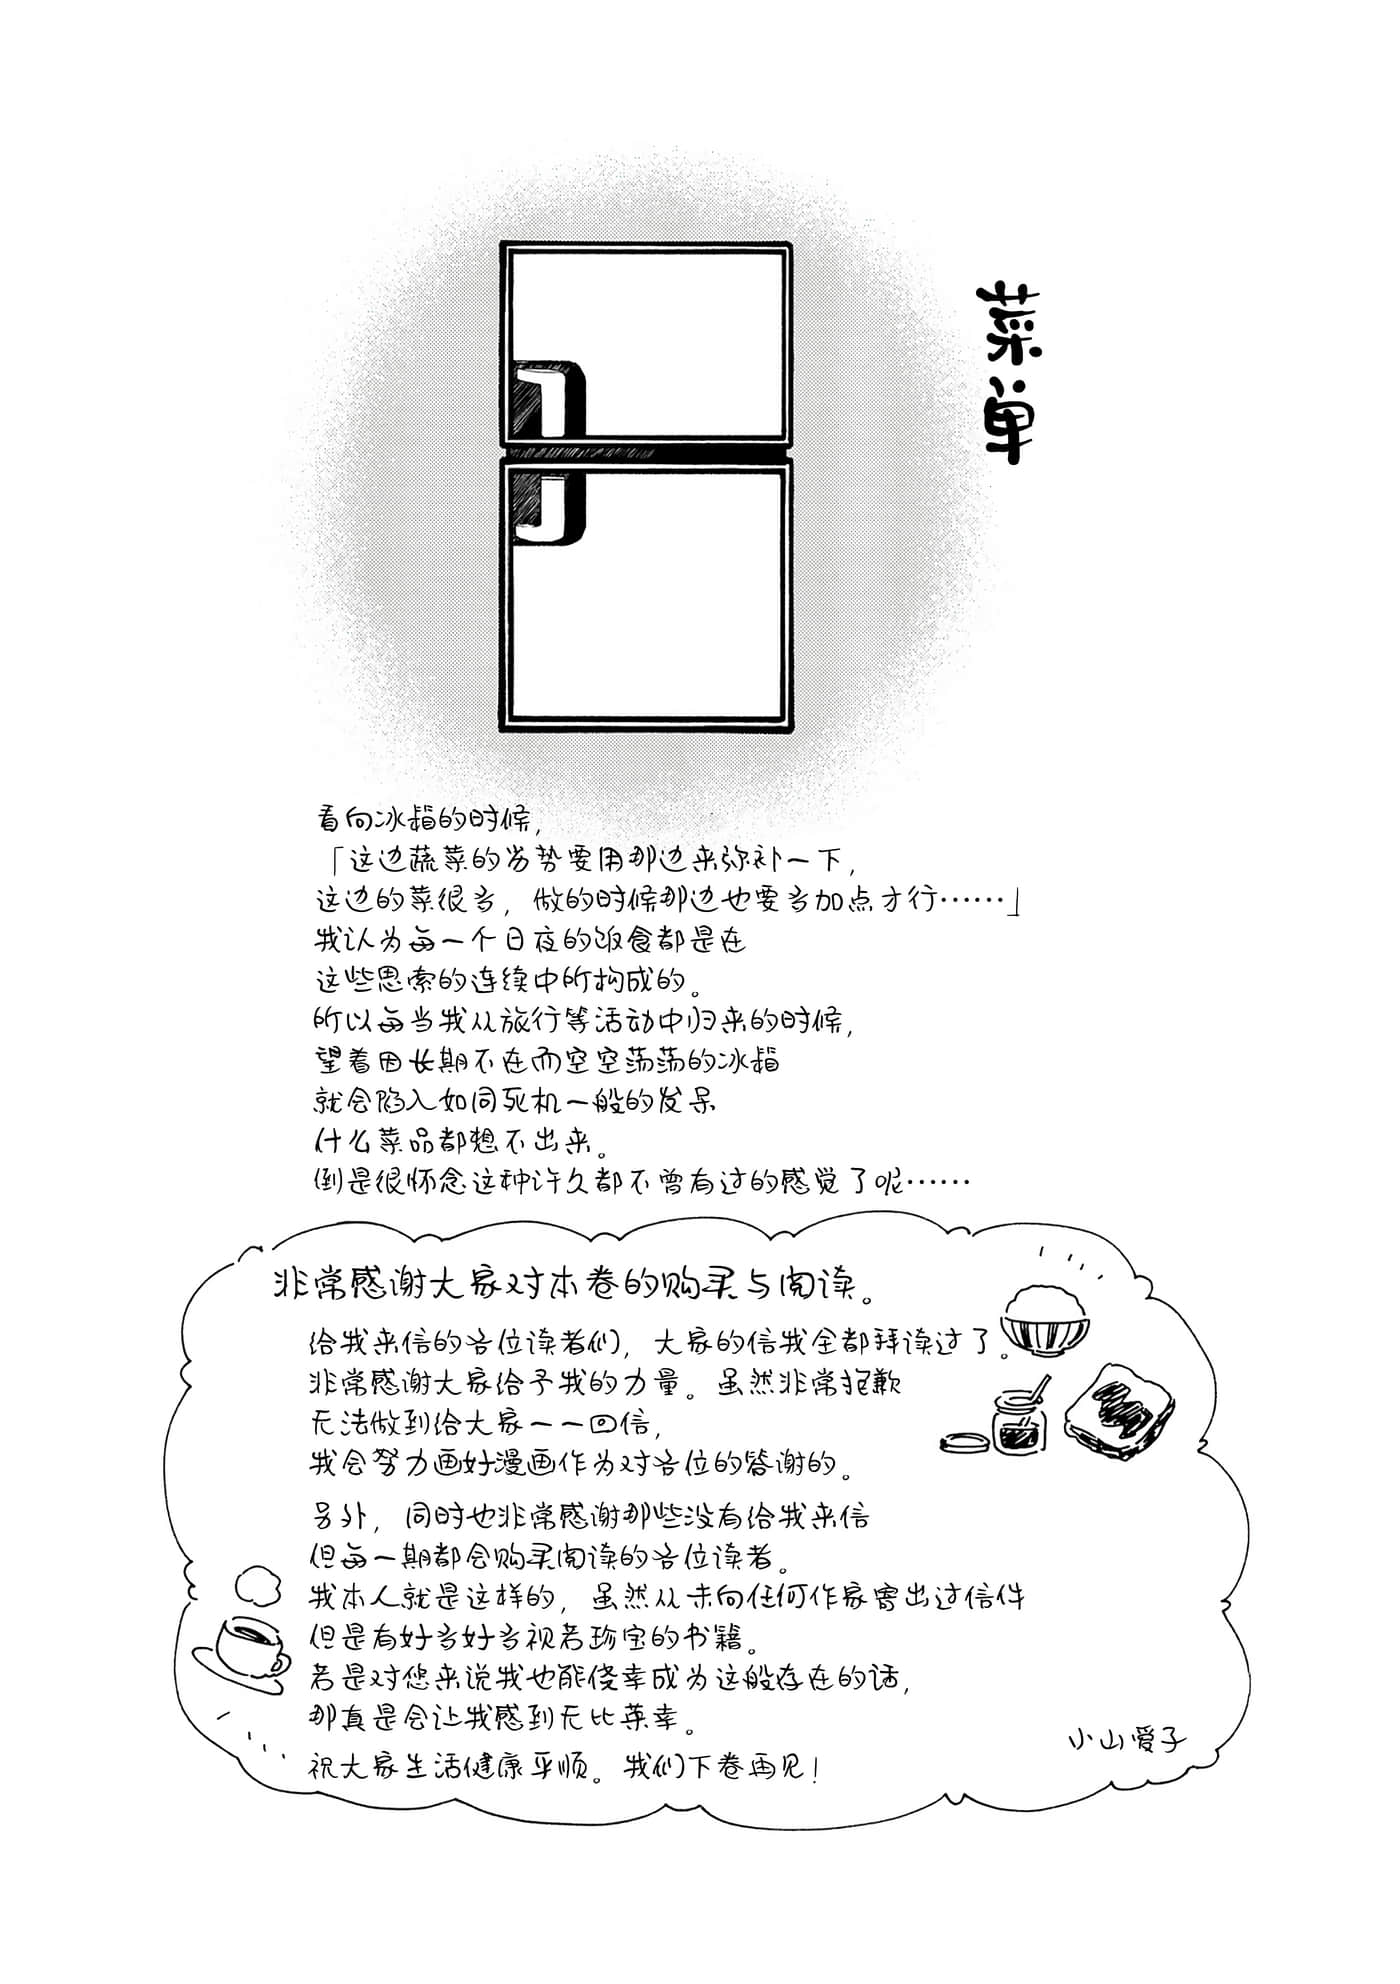 菜单
看向冰箱的时候,
「这边蔬菜的劣势要用那边来弥补一下,
这边的菜很多, 做的时候那边也要多加点才行……」
我认为每一个日夜的饭食都是在
这些思索的连续中所构成的。
所以每当我从旅行等活动中归来的时候,
望着因长期不在而空空荡荡的冰箱
就会陷入如同死机一般的发呆
什么菜品都想不出来。
倒是很怀念这种许久都不曾有过的感觉了呢……
非常感谢大家对本卷的购买与阅读。
给我来信的各位读者们, 大家的信我全都拜读过了。
非常感谢大家给予我的力量。虽然非常抱歉
无法做到给大家一一回信,
我会努力画好漫画作为对各位的答谢的。
另外, 同时也非常感谢那些没有给我来信
但每一期都会购买阅读的各位读者。
我本人就是这样的, 虽然从未向任何作家寄出过信件
但是有好多好多视若珍宝的书籍。
若是对您来说我也能侥幸成为这般存在的话,
那真是会让我感到无比荣幸。
祝大家生活健康平顺。我们下卷再见!
小山爱子